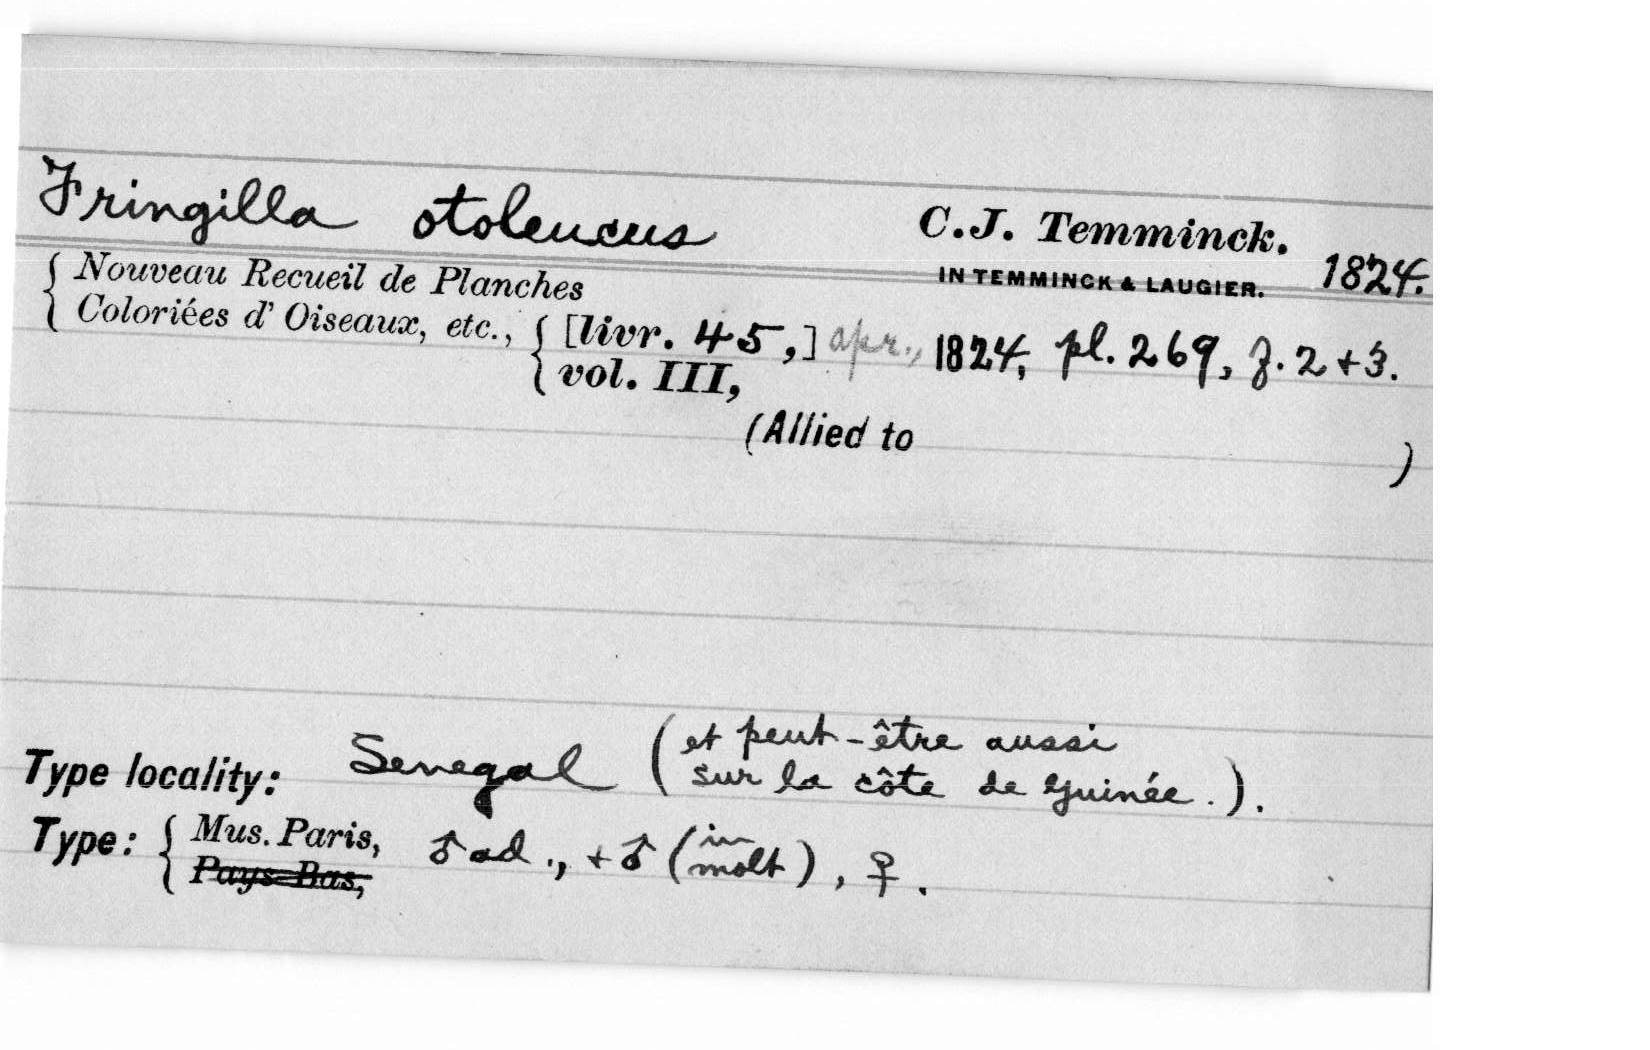 Fringilla otoleucus C.J. Temminck.
IN TEMMINCK & LAUGIER. 1824.
{ Nouveau Recueil de Planches
Coloriées d' Oiseaux, etc., { [livr. 45,] apr., 1824, pl. 269, f. 2 + 3.
vol. III,
(Allied to )
Type locality: Senegal (et peut-être aussi
sur la côte de Guinée.).
Type: { Mus. Paris, ♂ ad., + ♂ (in molt), ♀.
Pays-Bas,